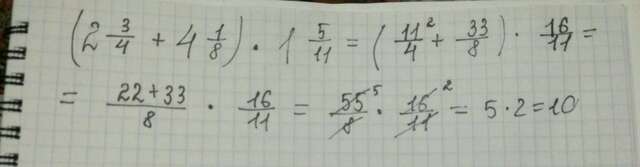 (2 3/4 + 4 1/8) · 1 5/11 = (11/4 ² + 33/8) · 16/11 =
= 22+33/8 · 16/11 = 55/8 ⁵ · 16/11 ² = 5·2=10